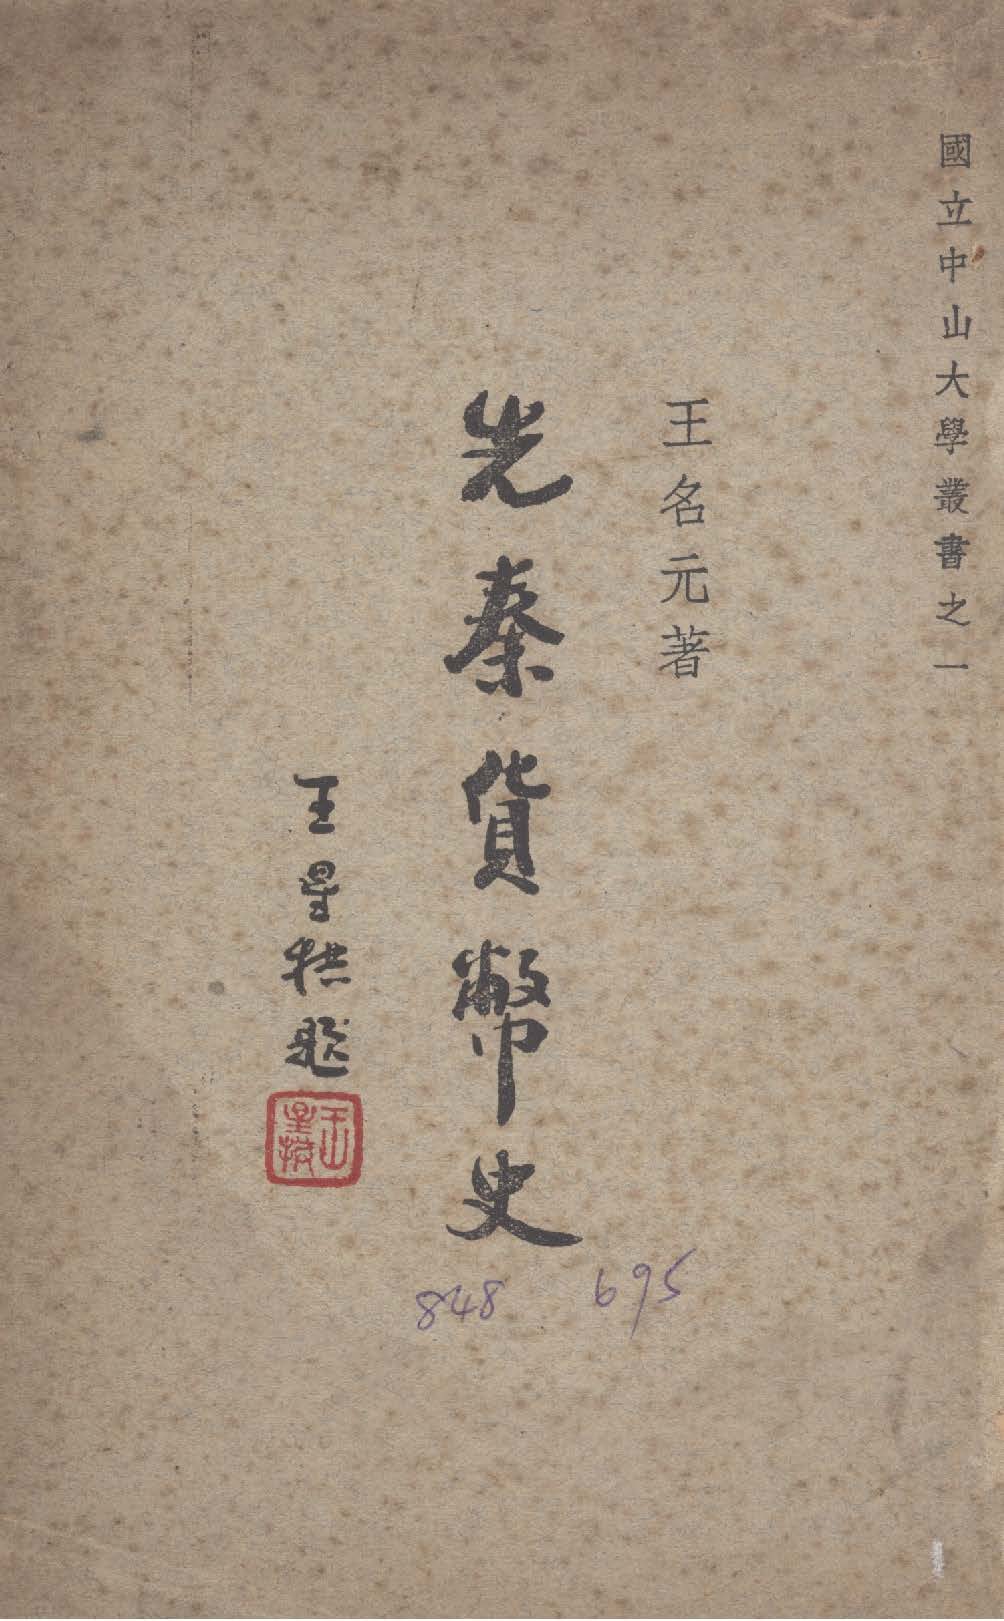 國立中山大學叢書之一
王名元著
先秦貨幣史
王星拱題
王星拱
848 695